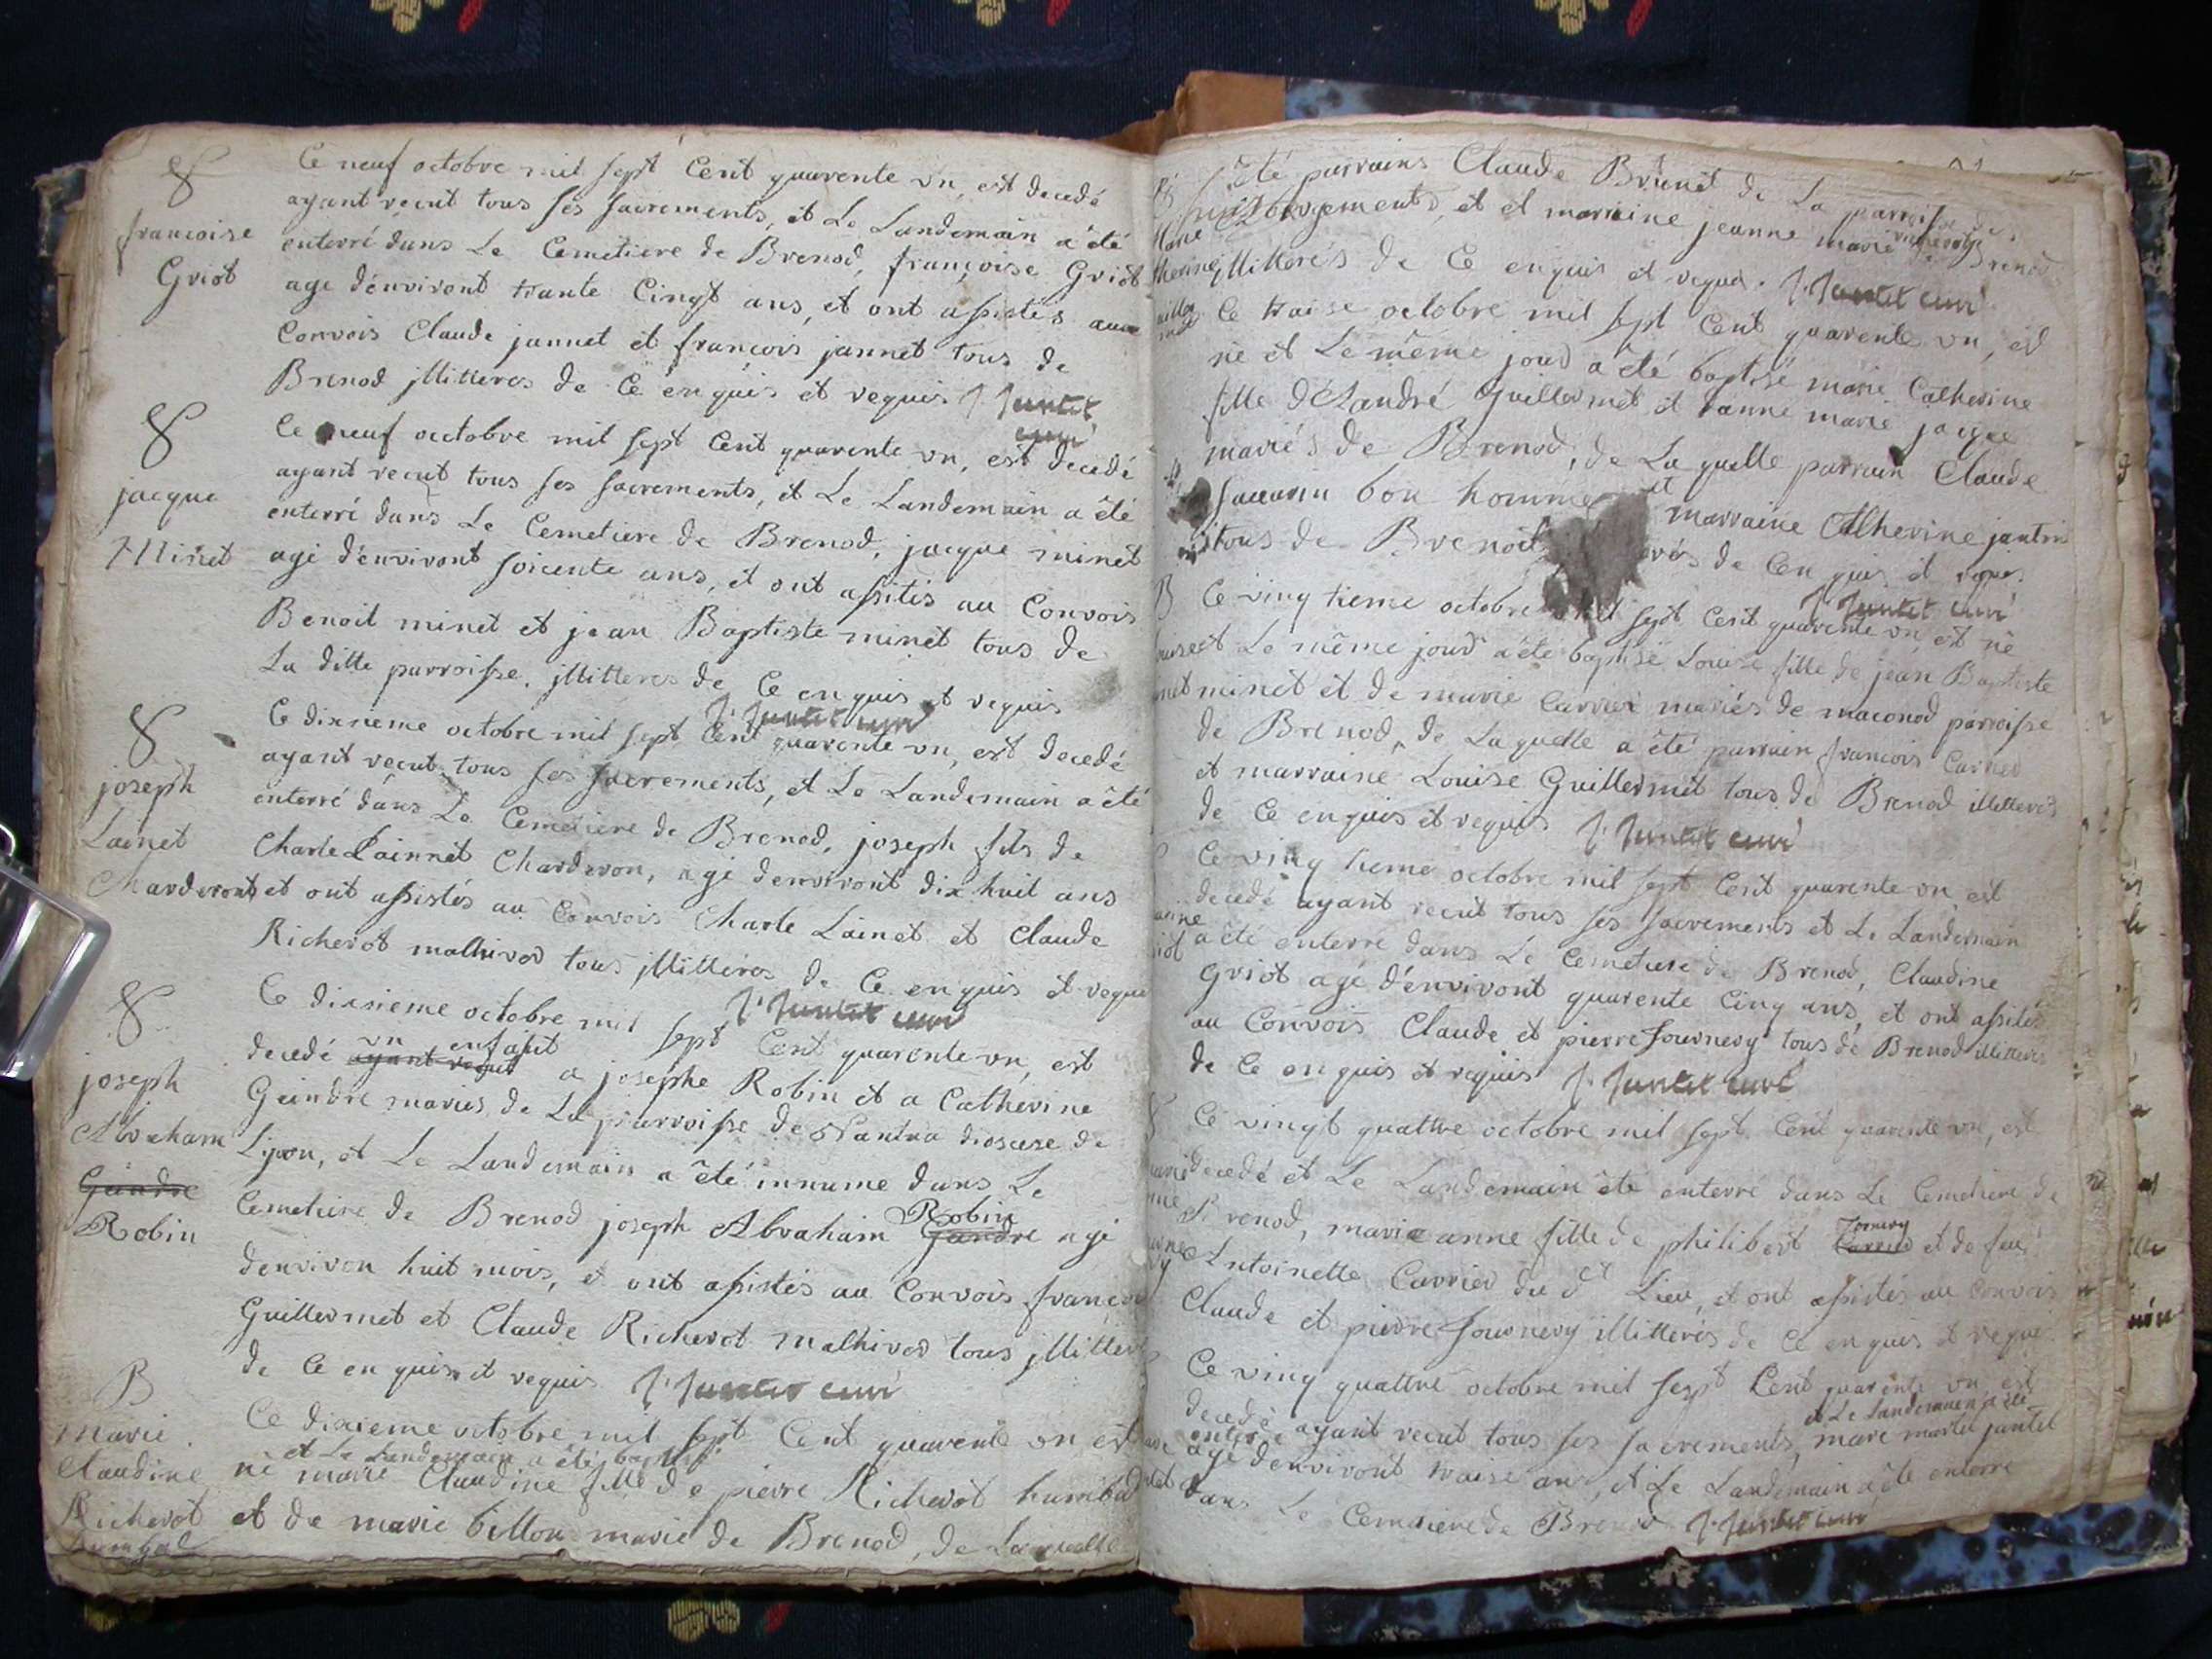 8
francoise
Griot
Ce neuf octobre mil sept Cent quarente vn, est decedé
ayant recut tous ses sacrements, et Le Landemain a été
enterré dans Le Cemetiere de Brenod, françoise Griot
agé d'environt trante Cinqt ans, et ont assistés aux
Convois Claude jannet et francois jannet tous de
Brenod jllitteres de Ce enquis et requis J. Jantet
curé
8
jacque
Minet
Ce neuf octobre mil sept Cent quarente vn, est decedé
ayant recut tous ses sacrements, et Le Landemain a été
enterré dans Le Cemetiere de Brenod, jacque minet
agé d'environt soicente ans, et ont assités au Convois
Benoit minet et jean Baptiste minet tous de
La ditte parroisse. jllitteres de Ce enquis et requis
J. Jantet curé
8
joseph
Lainet
Charderont
Ce dixieme octobre mil sept Cent quarente vn, est decedé
ayant recut tous ses sacrements, et Le Landemain a été
enterré dans Le Cemetiere de Brenod, joseph fils de
Charle Lainnet Charderon, agé denviront dix huit ans
et ont assistés au Convois Charle Lainet et Claude
Richerot malhivod tous jllitterés de Ce enquis et requi
J. Jantet curé
8
joseph
Abraham
Geindre
Robin
Ce dixsieme octobre mil sept Cent quarente vn, est
decedé ayant recut vn enfant a josephe Robin et a Catherine
Geindre mariés de La parroisse de Nantua diocese de
Lyon, et Le Landemain a été innume dans Le
Cemetiere de Brenod joseph Abraham Gandre Robin agé
denviron huit mois, et ont assistés au Convois françoi
Guillermet et Claude Richerot malhivod tous jllitter
de Ce enquis et requis J. Jantet curé
B
Marie
Claudine
Richerot
humbal
Ce dixieme octobre mil sept Cent quarente vn est
et Le Landemain a été baptisé
né marie Claudine fille de pierre Richerot humbal
et de marie billon marié de Brenod, de Laquelle
été parrains Claude Brunet de La parroisse de
et et marraine jeanne marie Richerot de Brenod
jllitterés de Ce enquis et requi. J. Jantet curé
Ce traise octobre mil sept Cent quarente vn, est
né et Le même jour a été baptisé marie Catherine
fille d'Landré Guillermet et Danne marie jacque
mariés de Brenod, de Laquelle parrain Claude
bon homme et marraine Catherine jantin
tous de Brenod de Cenquis et requis
J. Jantet curé
B
Ce vingtieme octobre mil sept Cent quarente vn, est né
et Le même jour a été baptisé Louise fille de jean Baptiste
minet et de marie Carrier mariés de maconod parroisse
de Brenod, de Laquelle a été parrain francois Carrier
et marraine Louise Guillermet tous de Brenod illitterés
de Ce enquis et requis J. Jantet curé
Ce vingtieme octobre mil sept Cent quarente vn, est
decedé ayant recut tous ses sacrements et Le Landemain
a été enterré dans Le Cemetiere de Brenod, Claudine
Griot agé d'environt quarente Cinq ans, et ont assités
au Convois Claude et pierre fournery tous de Brenod illitteres
de Ce enquis et requis J. Jantet curé
Ce vingt quattre octobre mil sept Cent quarente vn, est
decedé et Le Landemain été enterré dans Le Cemetiere de
Brenod, marie anne fille de philibert Carrier fornery et de feue
Antoinette Carrier du dt Lieu, et ont assistés au Convois
Claude et pierre fournery illitterés de Ce enquis et requi
Ce vingt quattre octobre mil sept Cent quarente vn est
decedé ayant recut tous ses sacrements, et Le Landemain a été enterré marc martel jantet
agé denviront traise ans, et Le Landemain a été enterré
dans Le Cemetiere de Brenod J. Jantet curé